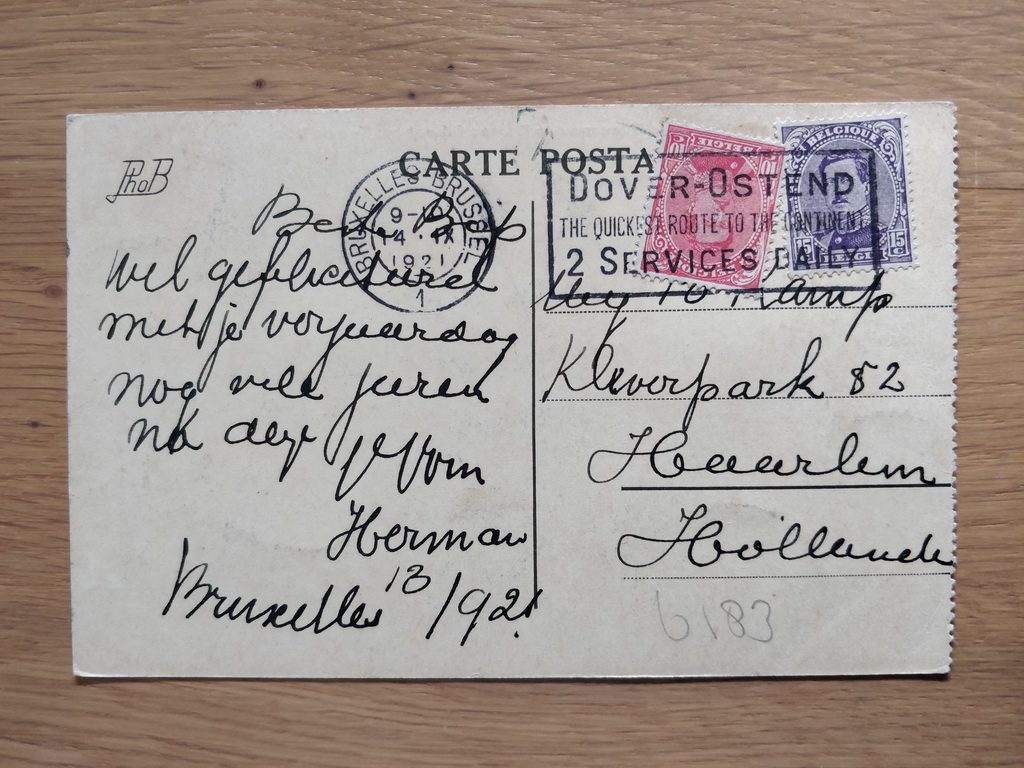 PhoB
CARTE POSTA
BRUXELLES-BRUSSEL
9-
14 · IX
1921
1
DOVER-OSTEND
THE QUICKEST ROUTE TO THE CONTINENT
2 SERVICES DAILY
BELGIE
10 10
BELGIQUE
15 15
BELGIE
Beste
Wel gefeliciteerd
met je verjaardag
nog vele jaren
na deze
Herman
Bruxelles 13/ 1921
Kamp
Kleverpark 82
Haarlem
Hollande
6183